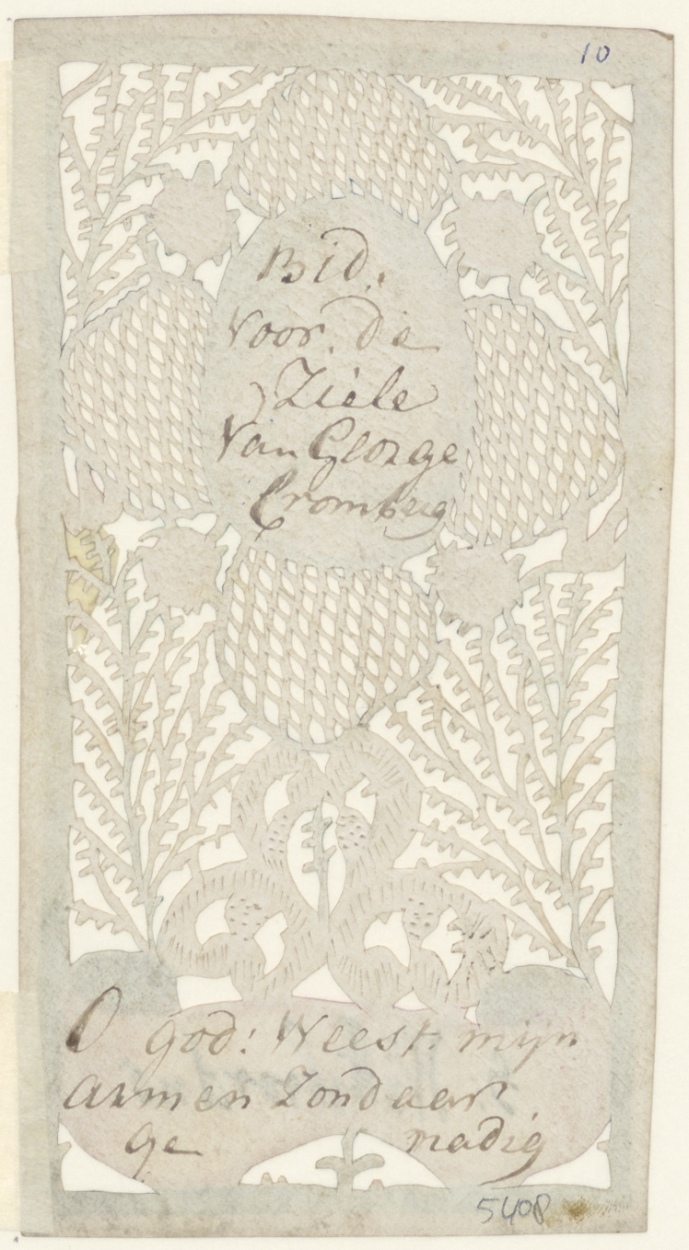 10
Bid.
Voor. de
Ziele
Van George
Crombrug
O god: Weest mijn
armen Zondaar
ge nadig
5408